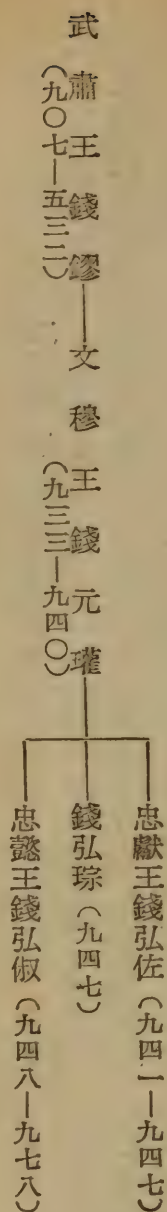 武肅王錢鏐
(九〇七—五三二)
文穆王錢元瓘
(九三三—九四〇)
忠獻王錢弘佐(九四一—九四七)
錢弘琮(九四七)
忠懿王錢弘俶(九四八—九七八)